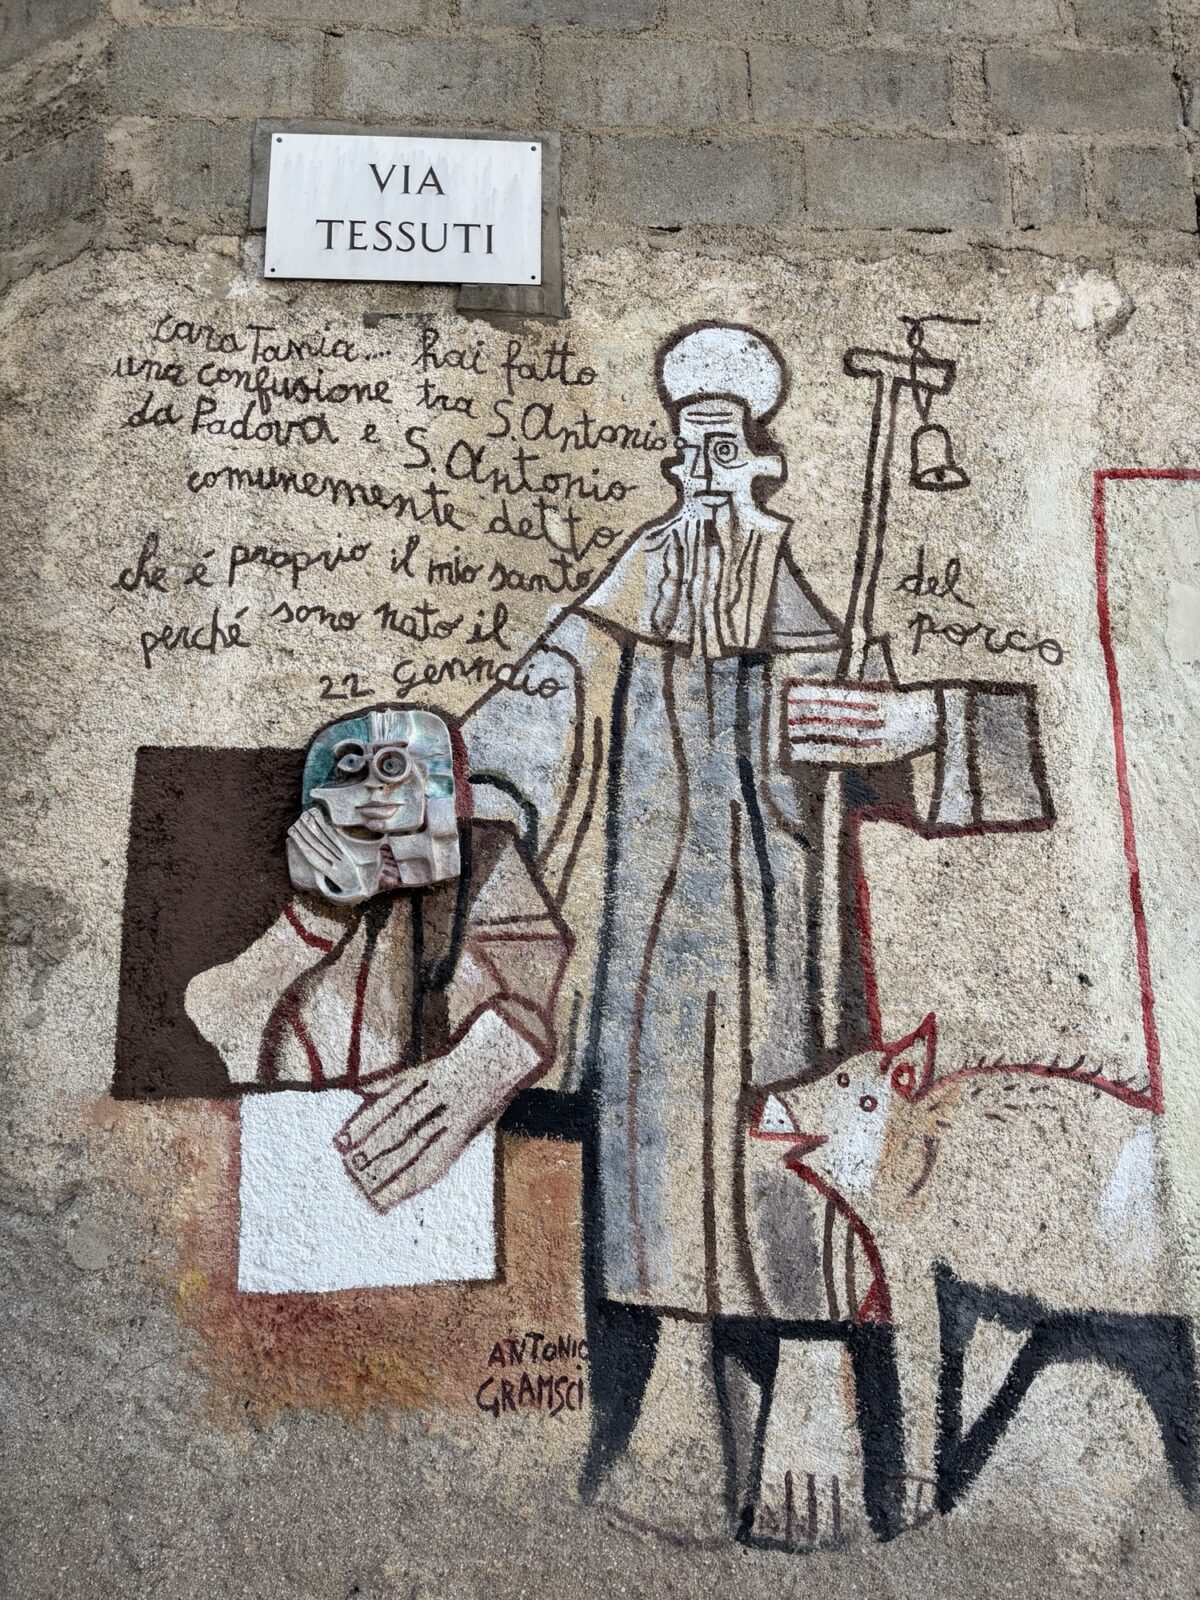 VIA
TESSUTI
cara Tania.... hai fatto
una confusione tra S. Antonio
da Padova e S. Antonio
comunemente detto
del
porco
che é proprio il mio santo
perché sono nato il
22 Gennaio
ANTONIO
GRAMSCI